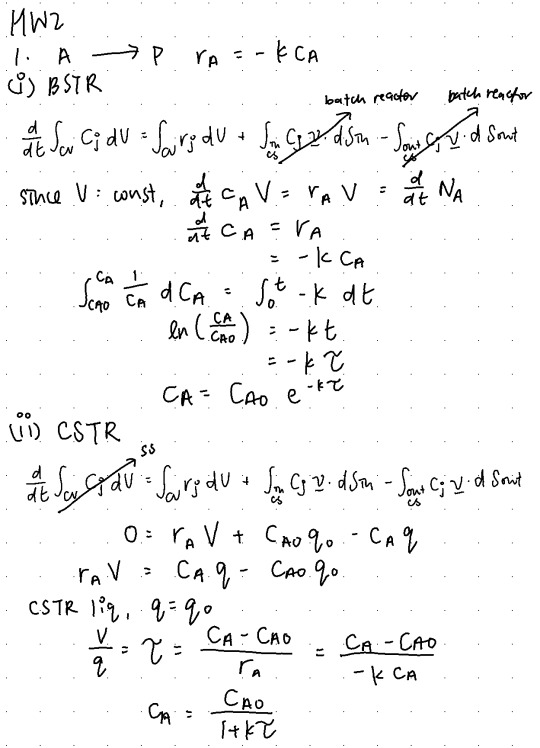 HW2
1. A ⟶ P r_A = -k C_A
(i) BSTR
batch reactor batch reactor
d/dt ∫_cv C_j dV = ∫_cv r_j dV + ∫_in cs C_j v · dS_in - ∫_out cs C_j v · dS_out
since V : const, d/dt C_A V = r_A V = d/dt N_A
d/dt C_A = r_A
= -k C_A
∫_CA0^CA 1/C_A dC_A = ∫_0^t -k dt
ln(C_A/C_A0) = -kt
= -kτ
C_A = C_A0 e^-kτ
(ii) CSTR
ss
d/dt ∫_cv C_j dV = ∫_cv r_j dV + ∫_in cs C_j v · dS_in - ∫_out cs C_j v · dS_out
0 = r_A V + C_A0 q_0 - C_A q
r_A V = C_A q - C_A0 q_0
CSTR liq, q = q_0
V/q = τ = (C_A - C_A0)/r_A = (C_A - C_A0)/(-k C_A)
C_A = C_A0/(1+kτ)